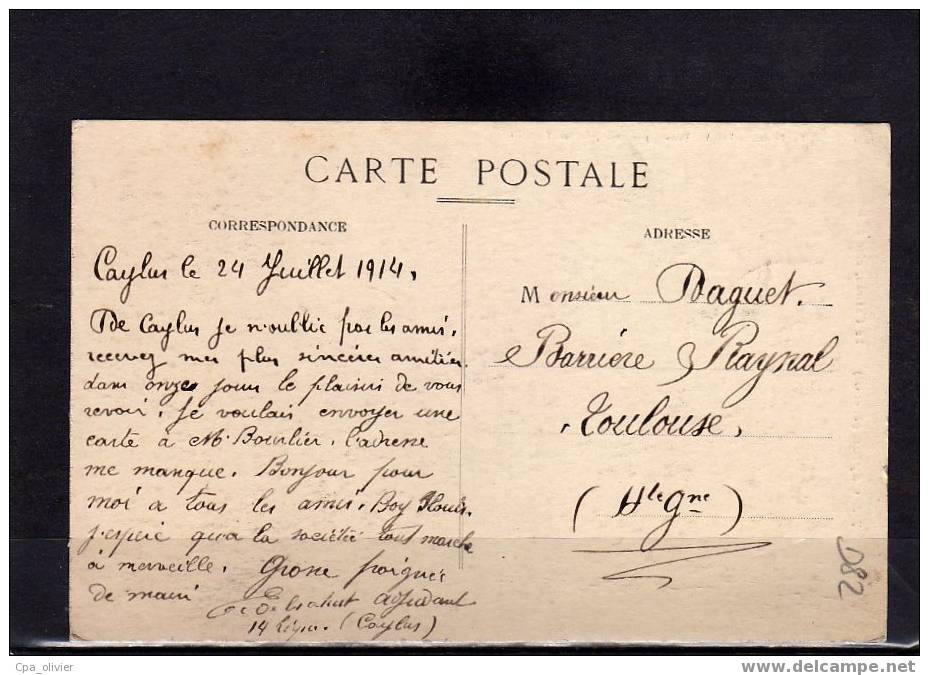 CARTE POSTALE
CORRESPONDANCE
Caylus le 24 Juillet 1914,
De Caylus je n'oublie pas les amis,
recevez mes plus sincères amitiés.
dans onze jours le plaisir de vous
revoir. Je voulais envoyer une
carte à Mr Bourlier, l'adresse
me manque. Bonjour pour
moi a tous les amis. Boy Louis.
j'espère qu'a la société tout marche
à merveille. Grosse poignée
de main
adjudant
14 (Caylus)
ADRESSE
Monsieur Daguet.
Barrière Raynal
Toulouse,
(Hte Gne)
D82
Cpa_olivier
www.delcampe.net